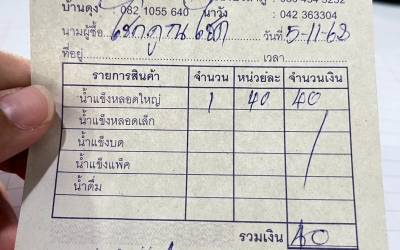 บ้านดุง : 082 1055 640 นาวัง : 042 363304
นามผู้ซื้อ วันที่ 5-11-68
ที่อยู่ เวลา
รายการสินค้า จำนวน หน่วยละ จำนวนเงิน
น้ำแข็งหลอดใหญ่ 1 40 40
น้ำแข็งหลอดเล็ก
น้ำแข็งบด
น้ำแข็งแพ็ค
น้ำดื่ม
รวมเงิน 40